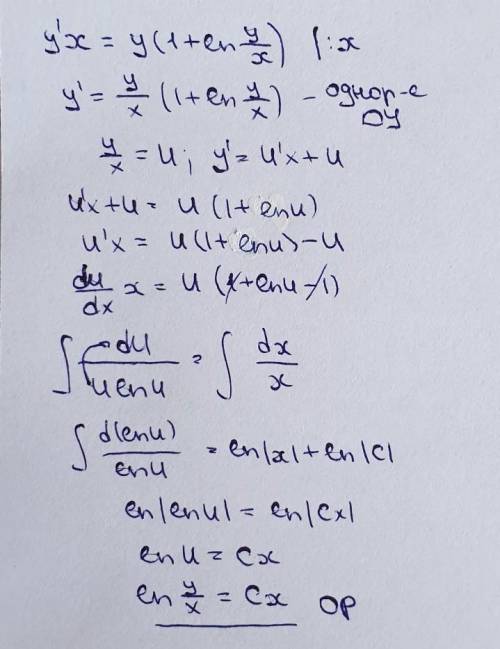 y'x = y(1+ln y/x) |:x
y' = y/x (1+ln y/x) - однор-е ДУ
y/x = u; y' = u'x+u
u'x+u = u(1+lnu)
u'x = u(1+lnu)-u
du/dx x = u(1+lnu-1)
∫ du/(u lnu) = ∫ dx/x
∫ d(lnu)/lnu = ln|x|+ln|C|
ln|lnu| = ln|Cx|
ln u = Cx
ln y/x = Cx ОР